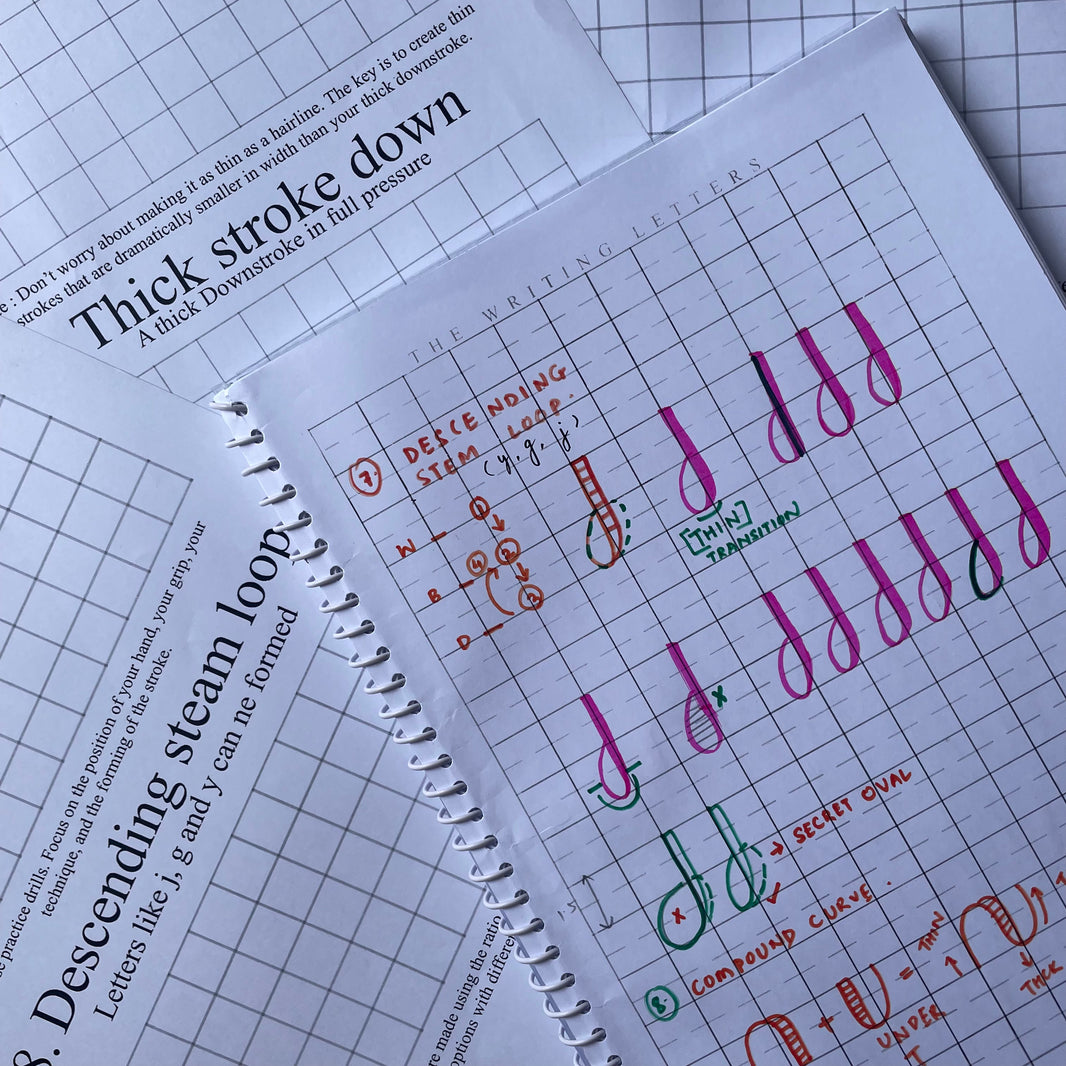 e : Don't worry about making it as thin as a hairline. The key is to create thin
strokes that are dramatically smaller in width than your thick downstroke.
Thick stroke down
A thick Downstroke in full pressure
THE WRITING LETTERS
7.
DESCENDING
STEM LOOP.
(y, g, j)
W
B
D
1
2
4
3
[THIN]
TRANSITION
x
x
→ SECRET OVAL
1.5
8. COMPOUND CURVE.
+
= THIN
UNDER
T
THICK
T
se practice drills. Focus on the position of your hand, your grip, your
technique, and the forming of the stroke.
8. Descending steam loop
Letters like j, g and y can ne formed
re made using the ratio
options with differe